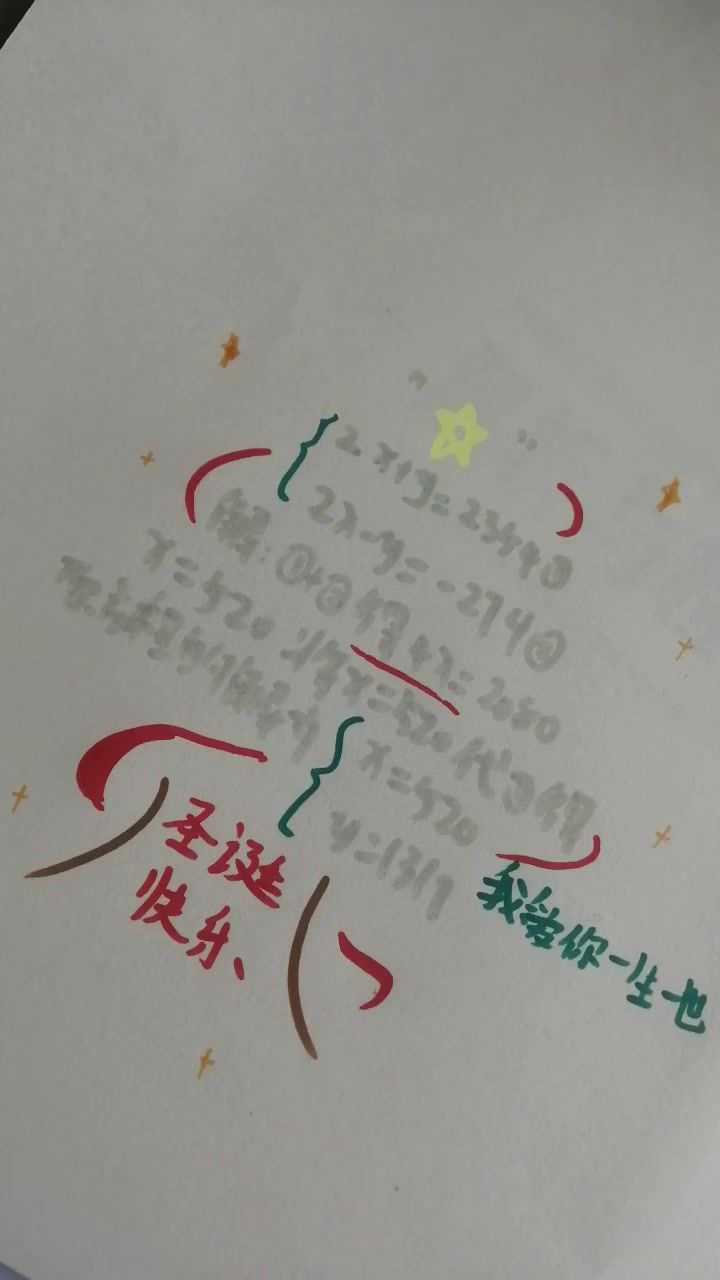 2x+y=2354①
2x-y=-274②
解:①+②得4x=2080
x=520 将x=520代①得
原方程组的解为
x=520
y=1314
圣诞
快乐
我爱你一生一世